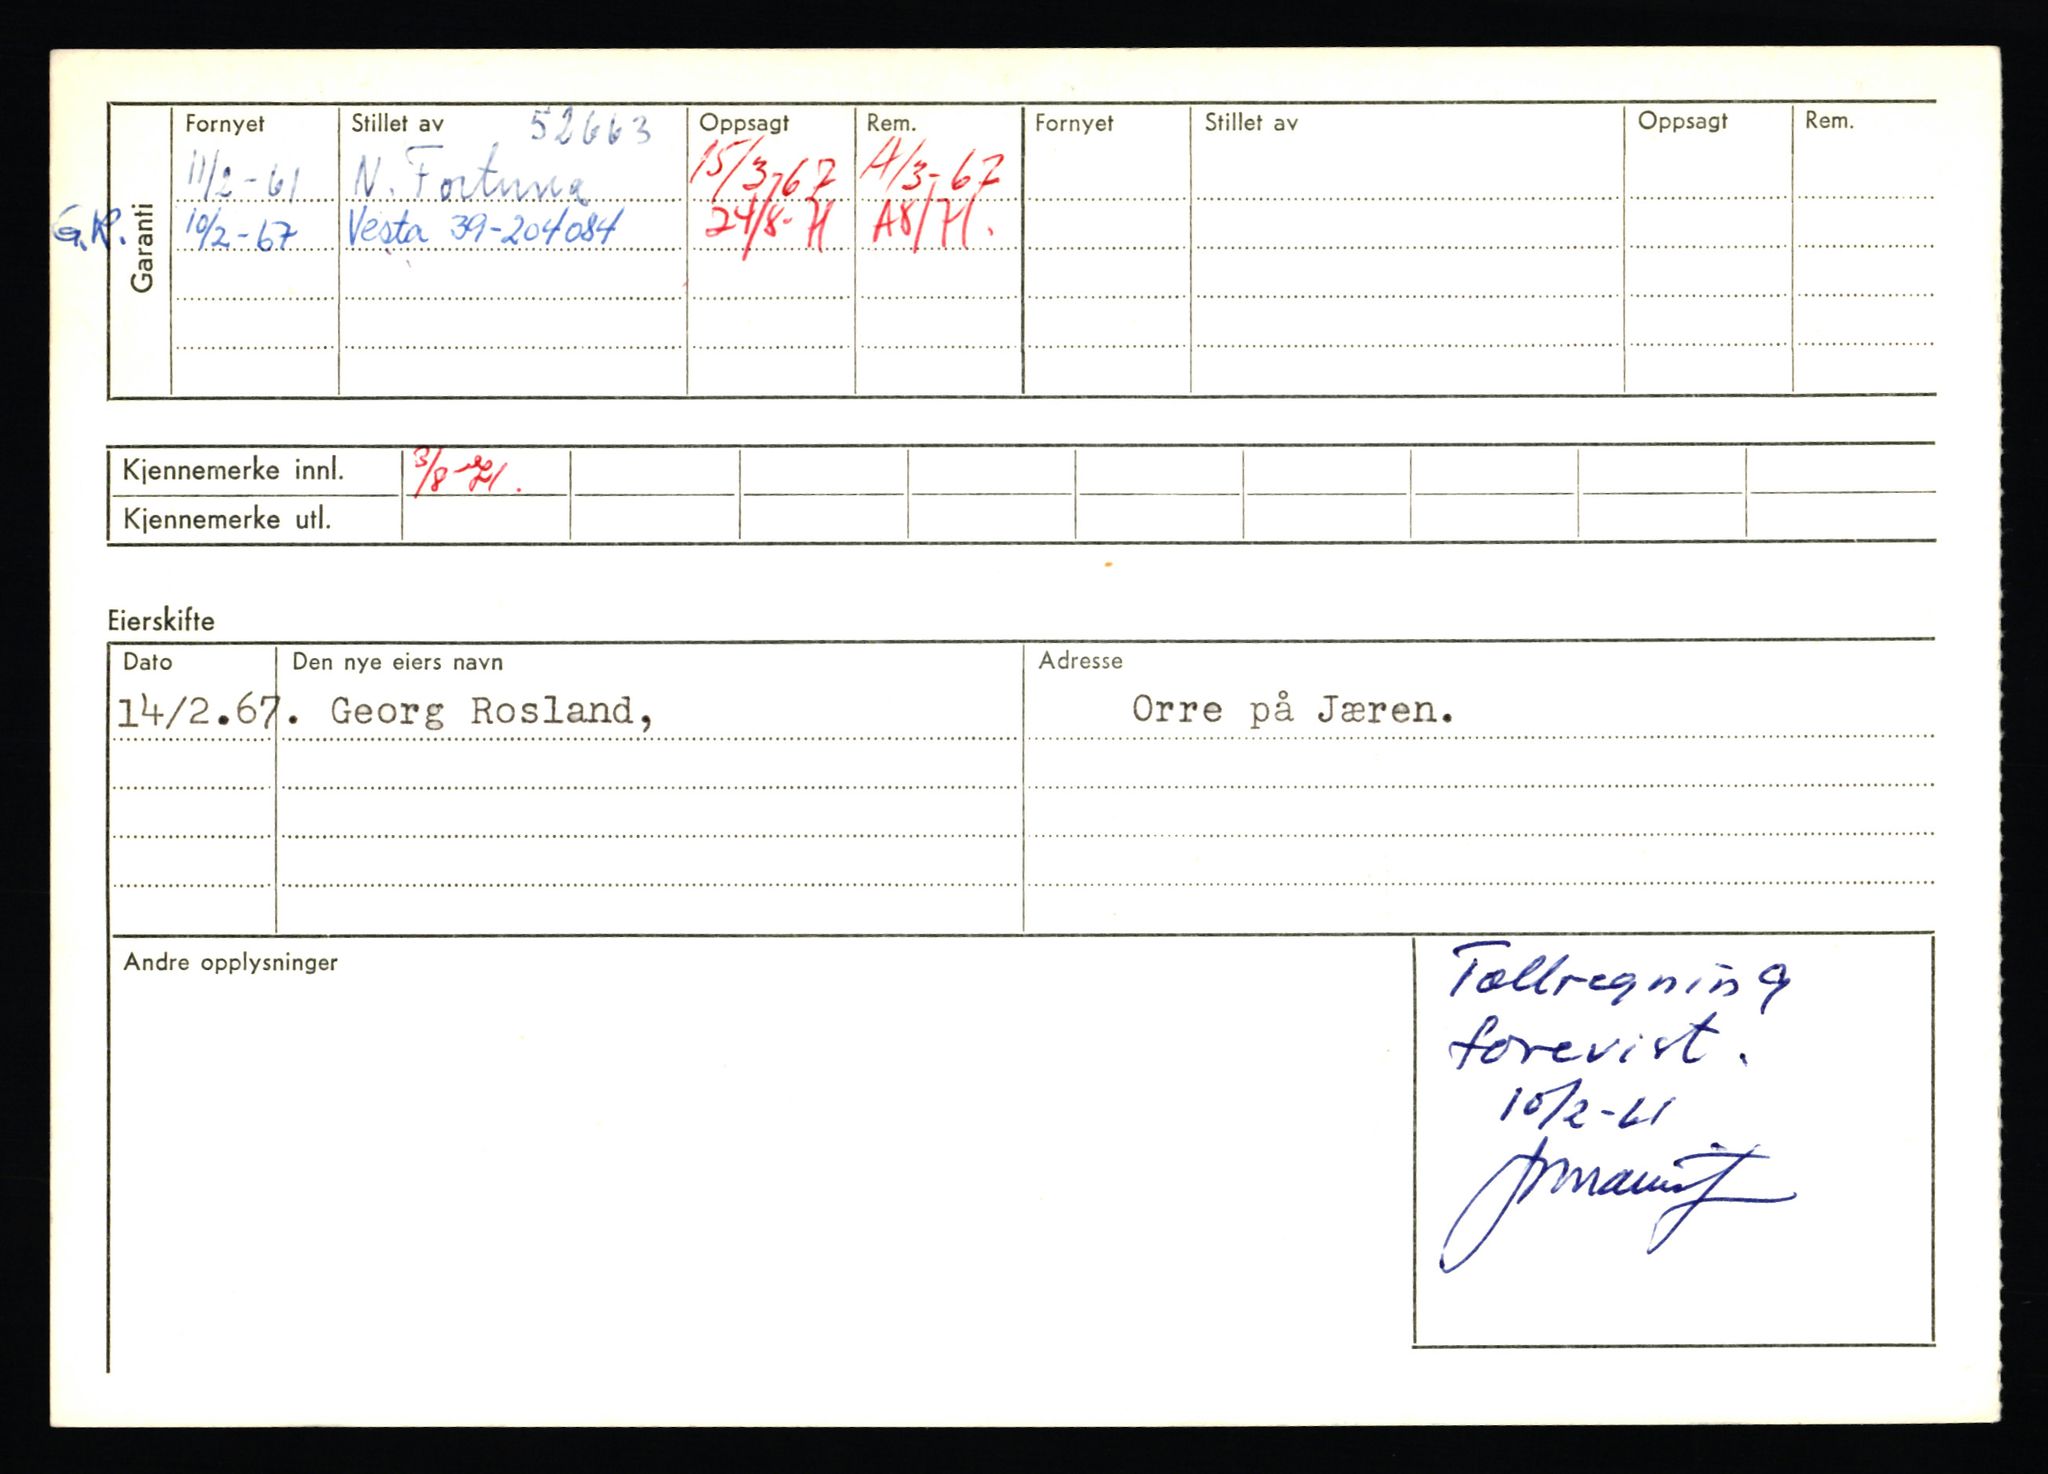 Garanti
Fornyet Stillet av 52663 Oppsagt Rem. Fornyet Stillet av Oppsagt Rem.
11/2-61 N. Fortuna 15/3-67 A/3-67
G.K. 10/2-67 Vesta 39-204084 24/8-71 A8/71.
Kjennemerke innl. 3/8-71.
Kjennemerke utl.
Eierskifte
Dato Den nye eiers navn Adresse
14/2.67. Georg Rosland, Orre på Jæren.
Andre opplysninger
Tollregning
forevist.
10/2-61